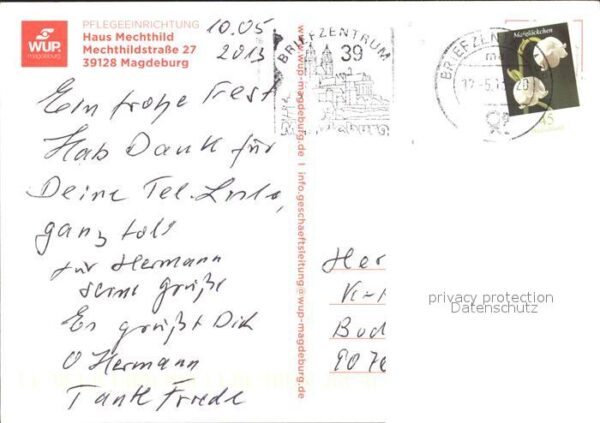 WUP.
magdeburg
PFLEGEEINRICHTUNG
Haus Mechthild
Mechthildstraße 27
39128 Magdeburg
10.05
2013
Ein frohe Fest
Hab Dank für
Deine Tel. Liste,
ganz toll
für Hermann
seine grüße
Es grüßt Dich
O Hermann
Tante Friede
www.wup-magdeburg.de | info.geschaeftsleitung@wup-magdeburg.de
BRIEFZENTRUM
39
BRIEFZEN
Maiglöckchen
45
Her
Bod
privacy protection
Datenschutz